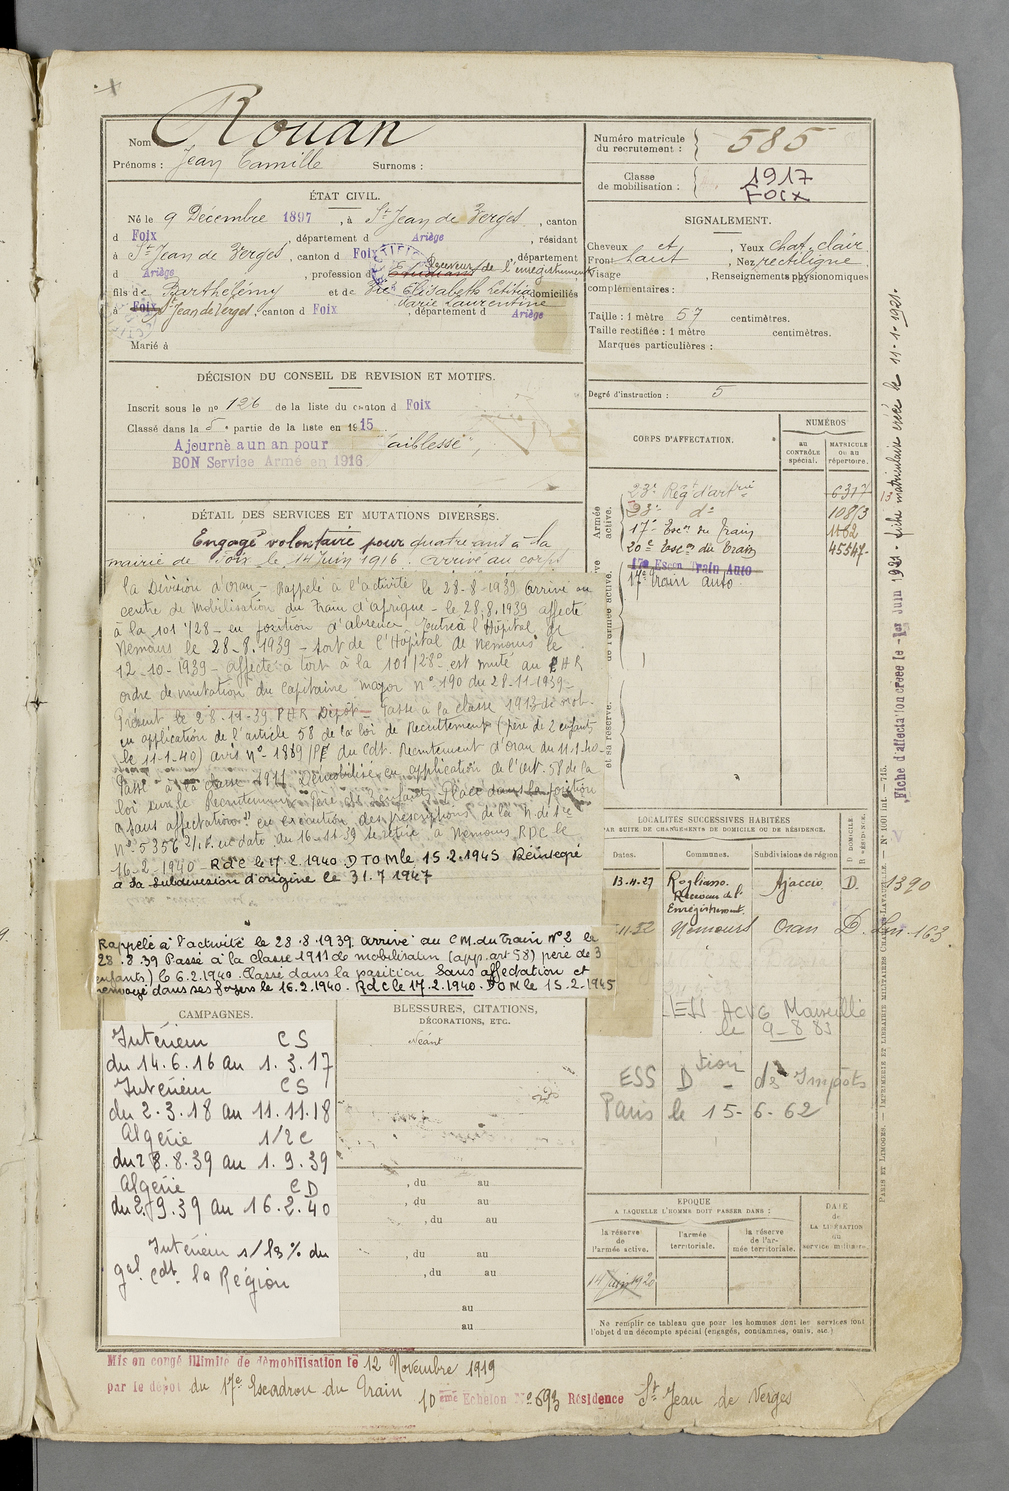 Nom Rouan
Prénoms : Jean Camille Surnoms :
Numéro matricule du recrutement : 585
Classe de mobilisation : 1917
FOIX
ÉTAT CIVIL.
Né le 9 Décembre 1897, à St Jean de Verges, canton
d Foix, département d Ariège, résidant
à St Jean de Verges, canton d Foix, département
d Ariège, profession de Receveur de l'enregistrement
fils de Barthélémy et de Elisabeth Letitia domiciliés
Marie Laurentine
à Foix St Jean de Verges, canton d Foix, département d Ariège
Marié à
SIGNALEMENT.
Cheveux et, Yeux chat. clair
Front haut, Nez rectiligne
Visage, Renseignements physionomiques
complémentaires :
Taille : 1 mètre 57 centimètres.
Taille rectifiée : 1 mètre centimètres.
Marques particulières :
Degré d'instruction : 5
DÉCISION DU CONSEIL DE REVISION ET MOTIFS.
Inscrit sous le no 126 de la liste du canton d Foix
Classé dans la 5e partie de la liste en 1915
Ajourné a un an pour faiblesse,
BON Service Armé en 1916
CORPS D'AFFECTATION.
NUMÉROS
au CONTRÔLE spécial.
MATRICULE ou au répertoire.
Armée active.
23e Régt d'artrie 6317
23e do 10863
17e Escon du Train 1162
20e Escon du Train 45547
17e Escon Train Auto
17e Train auto
DÉTAIL DES SERVICES ET MUTATIONS DIVERSES.
Engagé volontaire pour quatre ans à la
mairie de Foix le 14 Juin 1916. Arrivé au corps
la Division d'Oran - Rappelé à l'activité le 28-8-1939 arrivé au
centre de Mobilisation du Train d'Afrique - le 28.8.1939 affecté
à la 101/28 - en position d'absence. Entre à l'Hôpital de
Nemours le 28-8-1939 - Sort de l'Hôpital de Nemours le
12-10-1939 - affecté à tort à la 101/28e est muté au PHR
ordre de mutation du Capitaine major no 190 du 28-11-1939
Présent le 28-11-39 PHR Dépôt - Passé à la classe 1913 de mob.
en application de l'article 58 de la loi de recrutement (père de 2 enfants
le 11-1-40) avis no 1889/PE du Cdt Recrutement d'Oran du 11-1-40
Passé à la classe 1911 Démobilisé en application de l'art. 58 de la
loi sur le Recrutement Père de 3 enfants Placé dans la position
"sans affectation" en exécution des prescriptions de la N. de Sce
no 5356 2/1.P. en date du 16-11-39 se retire à Nemours, RDC le
16-2-1940 - Rdc le 17.2.1940. DTOM le 15.2.1945 Réintégré
à sa subdivision d'origine le 31.7 1947
Rappelé à l'activité le 28.8.1939. arrivé au C M. du Train No 2 le
28.8.39 Passé à la classe 1911 de mobilisation (app. art 58) père de 3
enfants) le 6.2.1940. Classé dans la position Sans affectation et
renvoyé dans ses foyers le 16.2.1940. Rdc le 17.2.1940. DTOM le 15.2.1945
LOCALITÉS SUCCESSIVES HABITÉES
PAR SUITE DE CHANGEMENTS DE DOMICILE OU DE RÉSIDENCE.
Dates. Communes. Subdivisions de région
D DOMICILE. R RÉSIDENCE.
13.11.27 Rogliano. Ajaccio D. 1390
Receveur de l'
Enregistrement.
11.32 Nemours Oran D. 163
ACVG Marseille
le 9-8 83
ESS Dtion - des Impôts
Paris le 15-6-62
CAMPAGNES.
Intérieur CS
du 14.6.16 au 1.3.17
Intérieur CS
du 2.3.18 au 11.11.18
Algérie 1/2 C
du 28.8.39 au 1.9.39
Algérie CD
du 2.9.39 au 16.2.40
Intérieur
gal. Cdt. la Région
BLESSURES, CITATIONS,
DÉCORATIONS, ETC.
Néant
, du au
, du au
, du au
, du au
, du au
au
au
EPOQUE
A LAQUELLE L'HOMME DOIT PASSER DANS :
la réserve de l'armée active.
l'armée territoriale.
la réserve de l'armée territoriale.
DATE de LA LIBÉRATION du service militaire.
14 Juin 1920
Ne remplir ce tableau que pour les hommes dont les services font
l'objet d'un décompte spécial (engagés, condamnés, omis, etc.)
Mis en congé illimité de démobilisation le 12 Novembre 1919
par le dépot du 17e Escadron du Train
10 ème Echelon No 693 Résidence St Jean de Verges
Fiche d'affectation créée le -1er Juin 1921 - Fiche matriculaire créée le 11-1-1921.
PARIS ET LIMOGES. — IMPRIMERIE ET LIBRAIRIE MILITAIRES CHARLES-LAVAUZELLE. — No 1001 int. — 715.